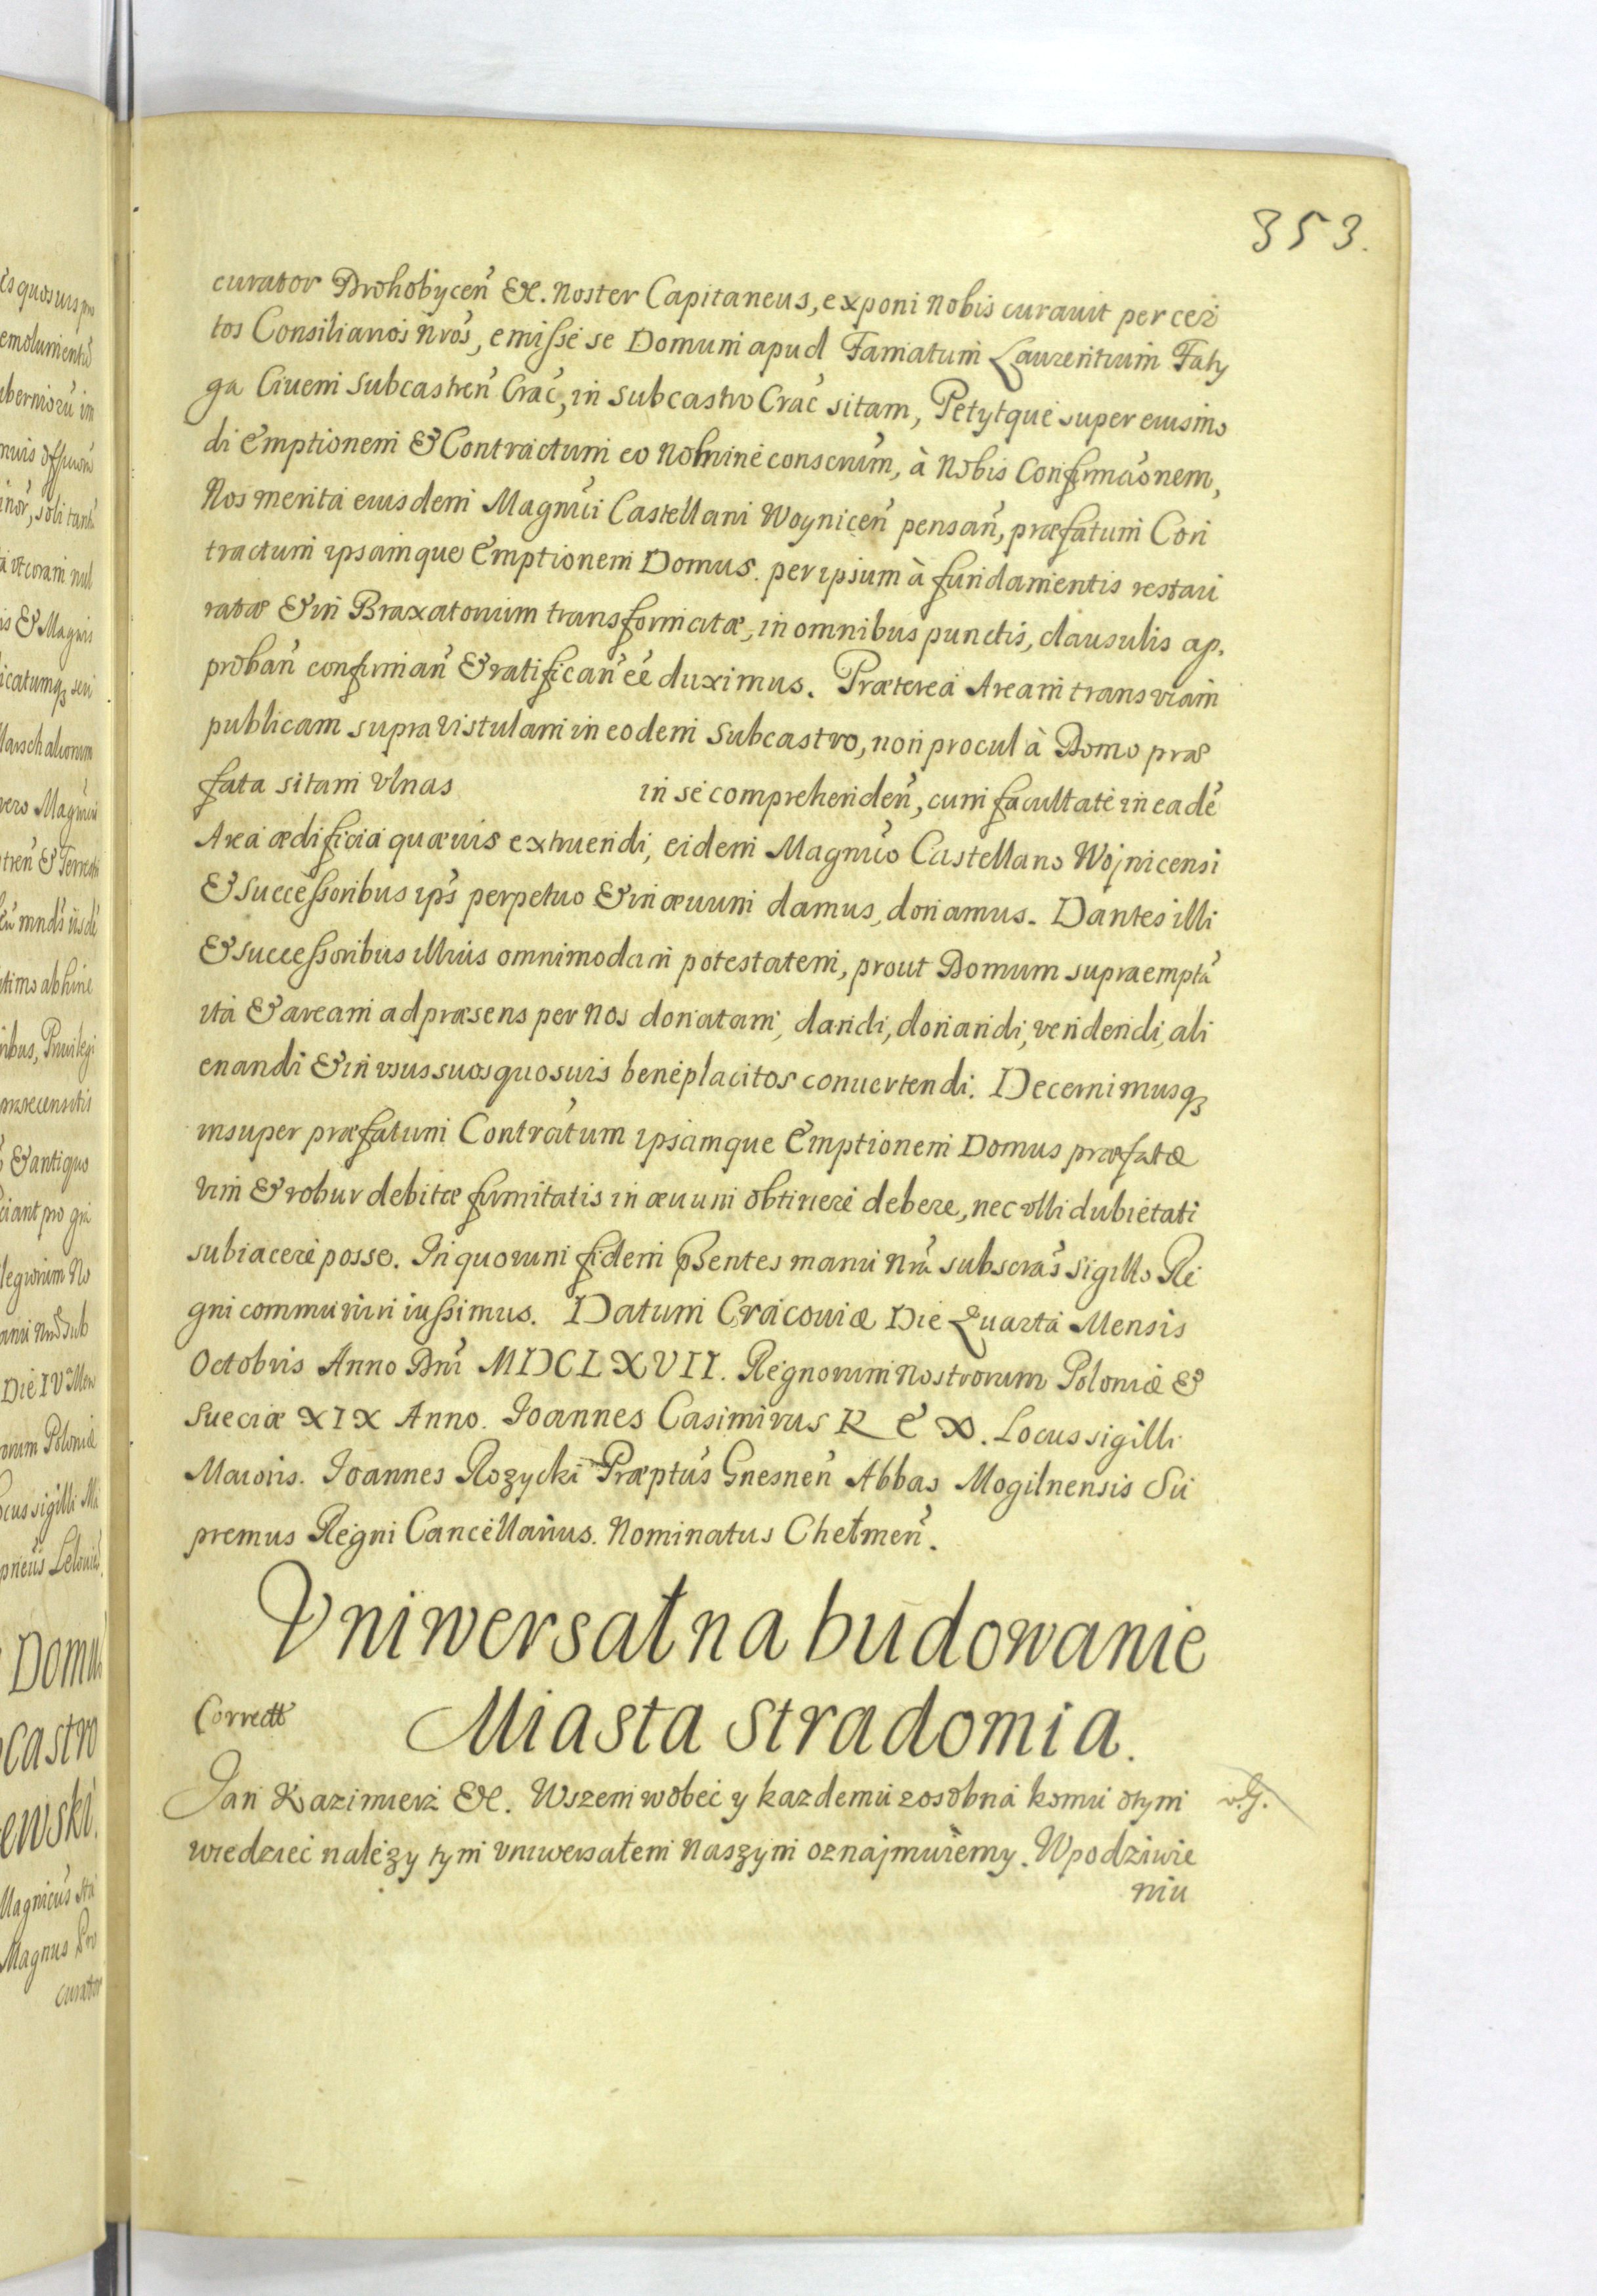 353.
curator Drohobycen̄ &c. Noster Capitaneus, exponi Nobis curauit per cer
tos Consiliarios nr̄os, emisse se Domum apud Famatum Laurentium Faty
ga Ciuem subcastren̄ Crac̄, in subcastro Crac̄ sitam, Petytque super eiusmo
di Emptionem & Contractum eo Nomine conscrīm, à Nobis Confirmāonem,
Nos merita eiusdem Magnīci Castellani Woynicen̄ pensan̄, præfatum Con
tractum ipsamque Emptionem Domus. per ipsum à fundamentis restau
ratæ & in Braxatorium transformatæ, in omnibus punctis, clausulis ap,
proban̄ confirman̄ & ratifican̄ eē duximus. Præterea Aream trans viam
publicam supra Vistulam in eodem Subcastro, non procul à Domo præ
fata sitam Vlnas in se comprehenden̄, cum facultate in eadē
Area ædificia quæuis extruendi, eidem Magnīco Castellano Wojnicensi
& successoribus ips̄ perpetuo & in æuum damus, donamus. Dantes illi
& successoribus illius omnimodam potestatem, prout Domum supra emptā
ita & aream ad præsens per Nos donatam, dandi, donandi, vendendi, ali
enandi & in vsus suos quosuis beneplacitos conuertendi. Decernimusqȝ
insuper præfatum Contrātum ipsamque Emptionem Domus præfatæ
vim & robur debitæ firmitatis in æuum obtinere debere, nec vlli dubietati
subiacere posse. In quorum fidem pn̄sentes manu Nrā subscrās sigillo Re
gni communiri iussimus. Datum Cracouiæ Die Quarta Mensis
Octobris Anno Dnī MDCLXVII. Regnorum Nostrorum Poloniæ &
Sueciæ XIX Anno. Joannes Casimirus REX. Locus sigilli
Maioris. Joannes Rozycki Præptūs Gnesnen̄ Abbas Mogilnensis Su
premus Regni Cancellarius. Nominatus Chełmen̄.
Vniwersał na budowanie
Correctt
Miasta Stradomia.
Jan Kazimierz &c. Wszem wobec y kazdemu zosobna komu otym
wiedziec nalezy tym vniwersałem Naszym oznajmuiemy. W podziwie
niu